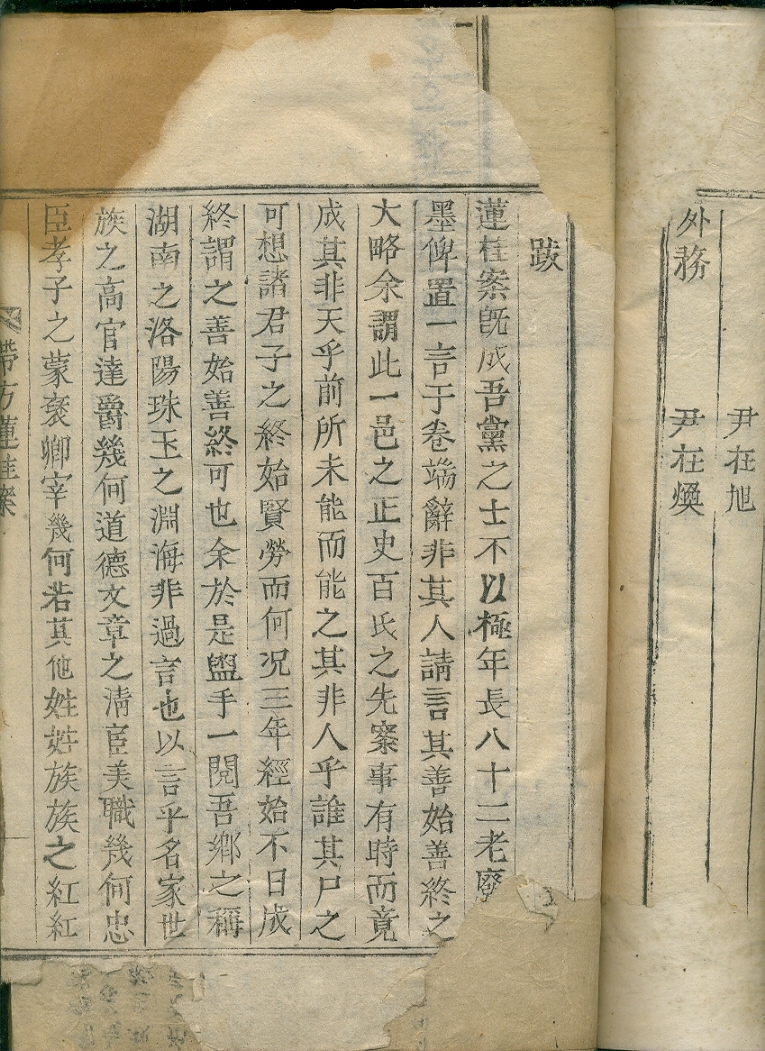 尹在旭
外務 尹在煥
跋
蓮桂案旣成吾黨之士不以極年長八十二老廢
墨俾置一言于卷端辭非其人請言其善始善終之
大略余謂此一邑之正史百氏之先案事有時而竟
成其非天乎前所未能而能之其非人乎誰其尸之
可想諸君子之終始賢勞而何况三年經始不日成
終謂之善始善終可也余於是盥手一閱吾鄕之稱
湖南之洛陽珠玉之淵海非過言也以言乎名家世
族之高官達爵幾何道德文章之淸宦美職幾何忠
臣孝子之蒙褒卿宰幾何若其他姓姓族族之紅紅
帶方蓮桂案